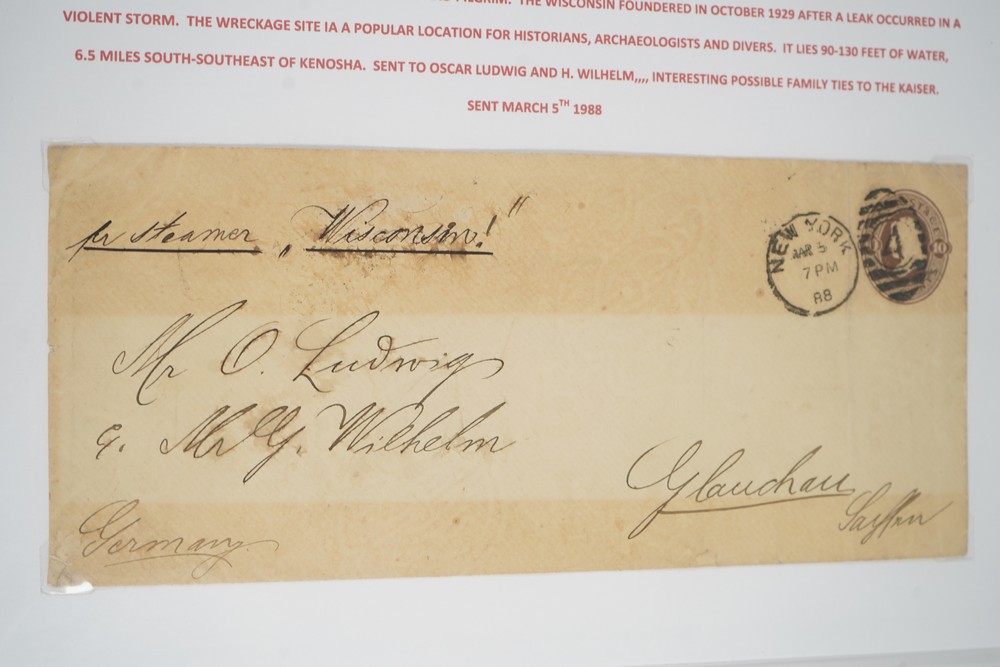 PILGRIM. THE WISCONSIN FOUNDERED IN OCTOBER 1929 AFTER A LEAK OCCURRED IN A
VIOLENT STORM. THE WRECKAGE SITE IA A POPULAR LOCATION FOR HISTORIANS, ARCHAEOLOGISTS AND DIVERS. IT LIES 90-130 FEET OF WATER,
6.5 MILES SOUTH-SOUTHEAST OF KENOSHA. SENT TO OSCAR LUDWIG AND H. WILHELM,,,, INTERESTING POSSIBLE FAMILY TIES TO THE KAISER.
SENT MARCH 5TH 1988
pr steamer „Wisconsin!"
NEW YORK
MAR 5
7 PM
88
1
Mr O. Ludwig
Mr G. Wilhelm
Glauchau
Germany